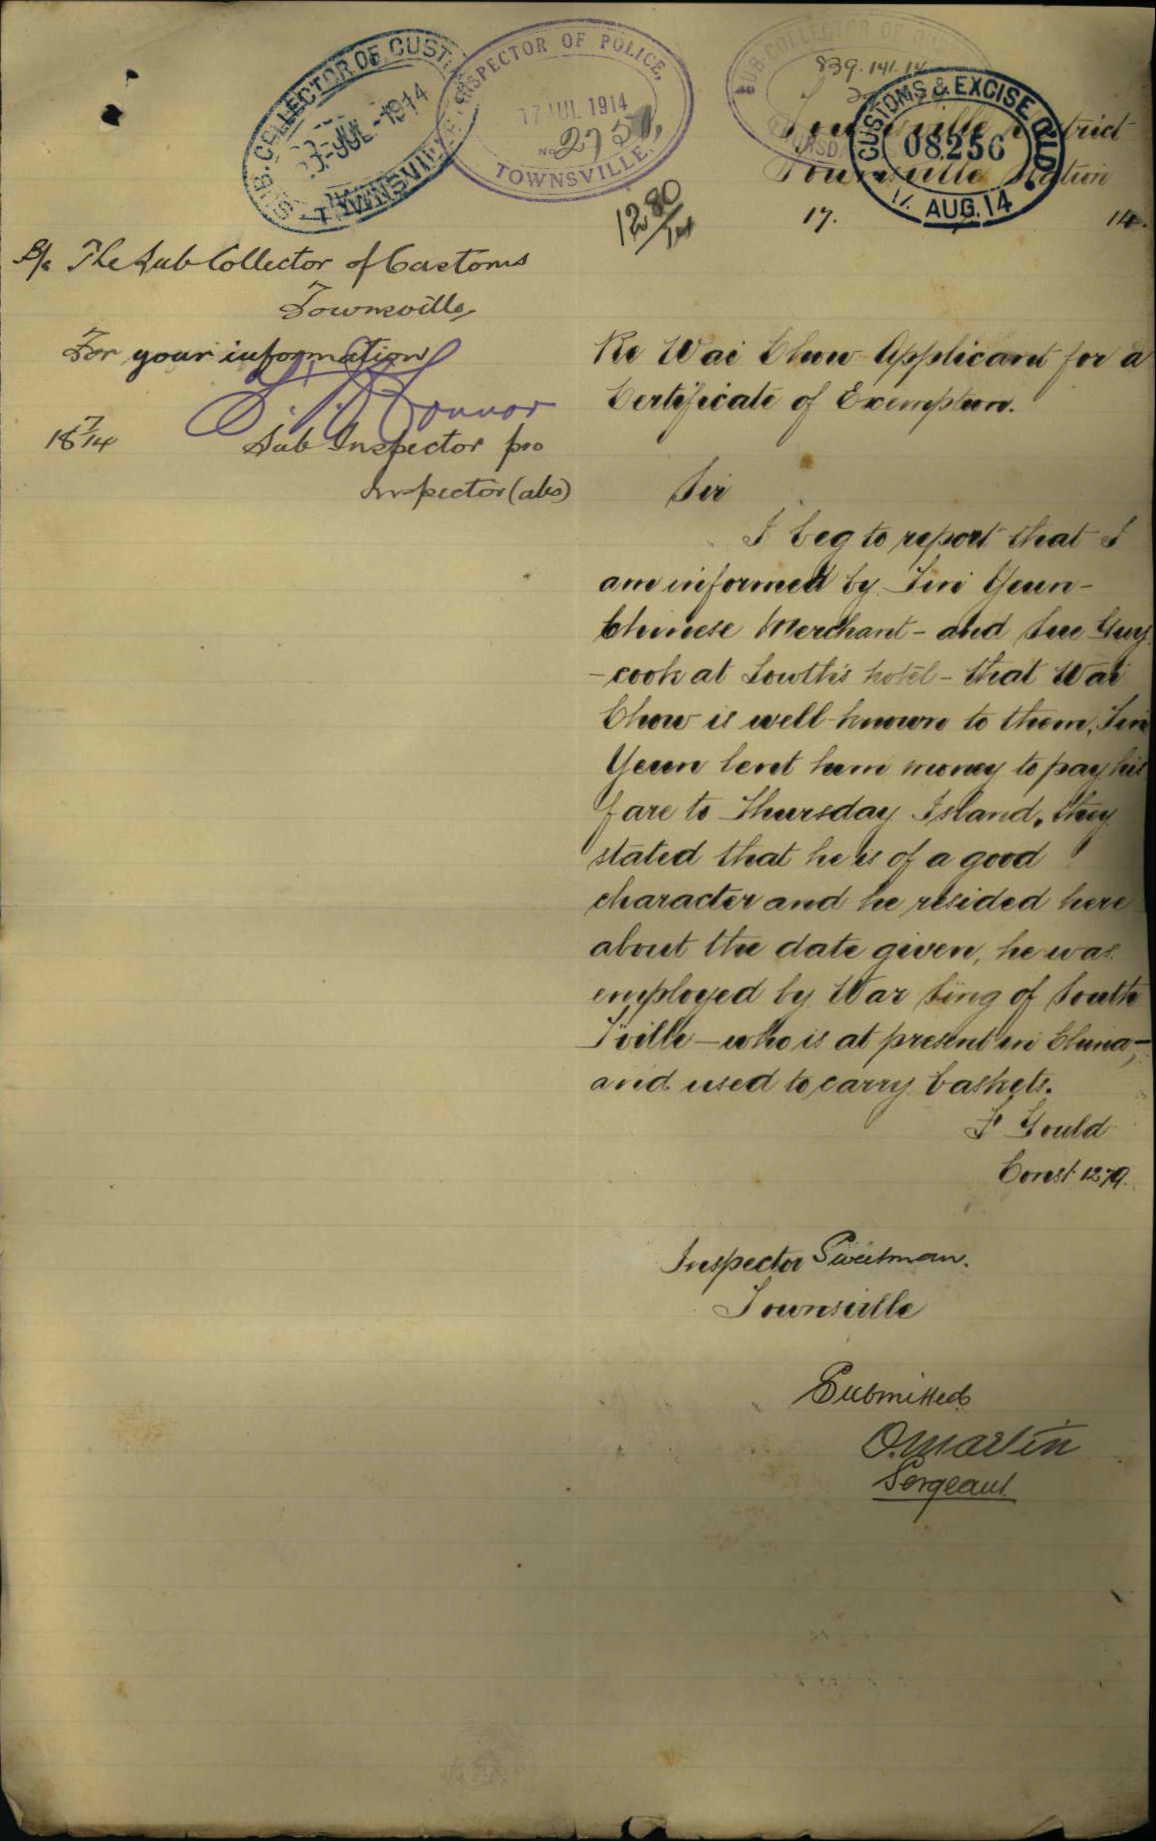 SUB-COLLECTOR OF CUST
JUL 1914
TOWNSVILLE
INSPECTOR OF POLICE,
17 JUL 1914
No 2757
TOWNSVILLE.
SUB-COLLECTOR OF
839.141.14
CUSTOMS & EXCISE QLD.
08256
AUG. 14
Townsville District
Townsville Station
17. 14.
1280/14
B/c The Sub Collector of Customs
Townsville
For your information
Connor
18 7/14 Sub Inspector pro
Inspector (abs)
Re Wai Chow Applicant for a
Certificate of Exemption.
Sir
I beg to report that I
am informed by Sin Yeun -
Chinese Merchant - and Sue Guy
- cook at Lowth's hotel - that Wai
Chow is well known to them, Sin
Yeun lent him money to pay his
fare to Thursday Island, they
stated that he is of a good
character and he resided here
about the date given, he was
employed by War Sing of South
T'ville - who is at present in China, -
and used to carry baskets.
F Gould
Const 1279.
Inspector Sweetman.
Townsville
Submitted
O. Martin
Sergeant